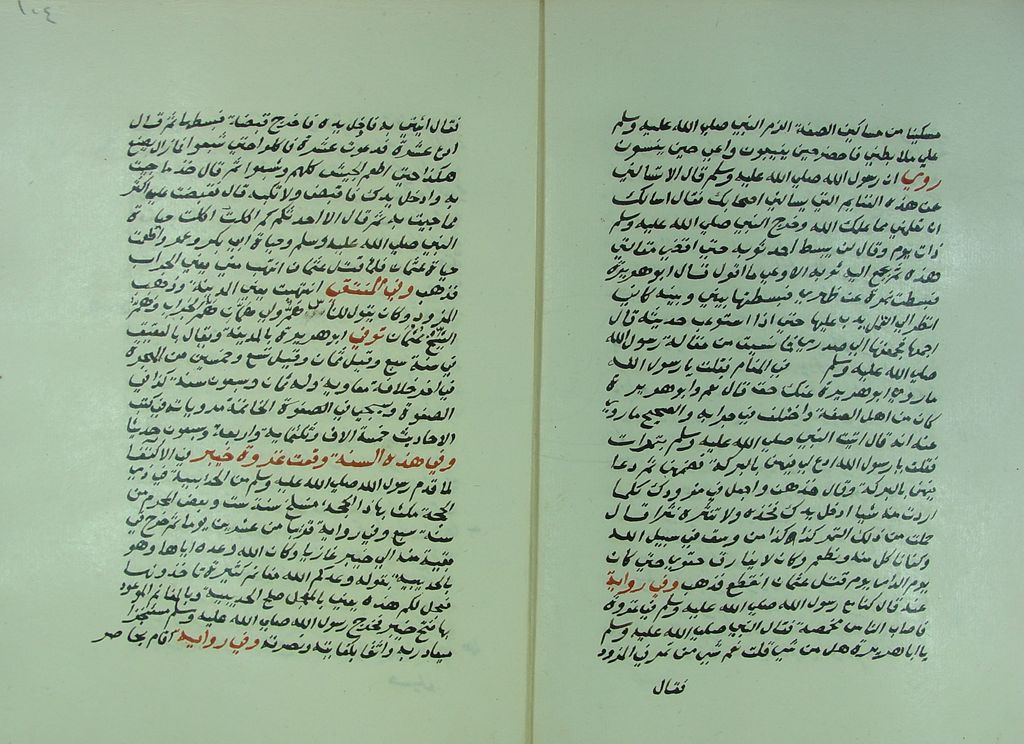 مسكينا من مساكين الصفة الزم النبي صلى الله عليه وسلم
على ملا بطني فاحضر حين يغيبون واعي حين ينسون
روي ان رسول الله صلى الله عليه وسلم قال الا تسالني
عن هذه الغنايم التي يسالني اصحابك فقال اسالك
ان تعلمني مما علمك الله وخرج النبي صلى الله عليه وسلم
ذات يوم وقال لن يبسط احد ثوبه حتى اقضي مقالتي
هذه ثم يجمع اليه ثوبه الا وعي ما اقول قال ابو هريرة
فبسطت نمرة على ظهري فبسطتها بيني وبينه كاني
انظر الى القمل يدب عليها حتى اذا استوعب حديثه قال
اجمعها فجمعتها الى صدري فما نسيت من مقالة رسول الله
صلى الله عليه وسلم في المنام فقلت يا رسول الله
ما رواه ابو هريرة عنك حق قال نعم وابو هريرة
كان من اهل الصفة واختلف في جرابه والصحيح ما روي
عنه انه قال اتيت النبي صلى الله عليه وسلم بتمرات
فقلت يا رسول الله ادع لي فيهن بالبركة فضمهن ثم دعا
فيهن بالبركة وقال خذهن واجعل في مزودك كلما
اردت منه شيا ادخل يدك فخذه ولا تنثره نثرا قال
حملت من ذلك التمر كذا وكذا من وسق في سبيل الله
وكنا ناكل منه ونطعم وكان لا يفارق حقوي حتى كان
يوم الدار يوم قتل عثمان انقطع فذهب وفي رواية
عنه قال كنا مع رسول الله صلى الله عليه وسلم في غزوة
فاصاب الناس مخمصة فقال النبي صلى الله عليه وسلم
يا ابا هريرة هل من شي قلت نعم شي من تمر في المزود
فقال
١٠٤
فقال ائتني به فادخل يده فاخرج قبضة فبسطها ثم قال
ادع عشرة فدعوت عشرة فاكلوا حتى شبعوا فما زال يصنع
هكذا حتى اطعم الجيش كلهم وشبعوا ثم قال خذ ما جيت
به وادخل يدك فاقبض ولا تكبه قال فقبضت على اكثر
مما جيت به ثم قال الا احدثكم كم اكلت اكلت حياة
النبي صلى الله عليه وسلم وحياة ابي بكر وعمر واطعمت
حياة عثمان فلما قتل عثمان انتهب مني يعني الجراب
فذهب وفي المنتقى انتهبت بيتي المدينة وذهب
المزود وكان يقول للناس هم ولي همان هم الجراب وهم
الشيخ عثمان توفي ابو هريرة بالمدينة ويقال بالعقيق
في سنة سبع وقيل ثمان وقيل تسع وخمسين من الهجرة
في اخر خلافة معاوية وله ثمان وسبعون سنة كذا في
الصفوة وسيجي في الصفوة الخاتمة مروياته في كتب
الاحاديث خمسة الاف وثلثماية واربعة وسبعون حديثا
وفي هذه السنة وقعت غزوة خيبر في الاكتفا
لما قدم رسول الله صلى الله عليه وسلم من الحديبية في ذي
الحجة مكث بها ذا الحجة منسلخ سنة ست وبعض المحرم من
سنة سبع وفي رواية قريبا من عشرين يوما ثم خرج في
بقية منه الى خيبر غازيا وكان الله وعده اياها وهو
بالحديبية بقوله وعدكم الله مغانم كثيرة تاخذونها
فعجل لكم هذه يعني بالمعجل صلح الحديبية وبالمغانم الموعود
بها فتح خيبر فخرج رسول الله صلى الله عليه وسلم مستنجزا
ميعاد ربه واثقا بكفايته ونصرته وفي رواية اقام يحاصر